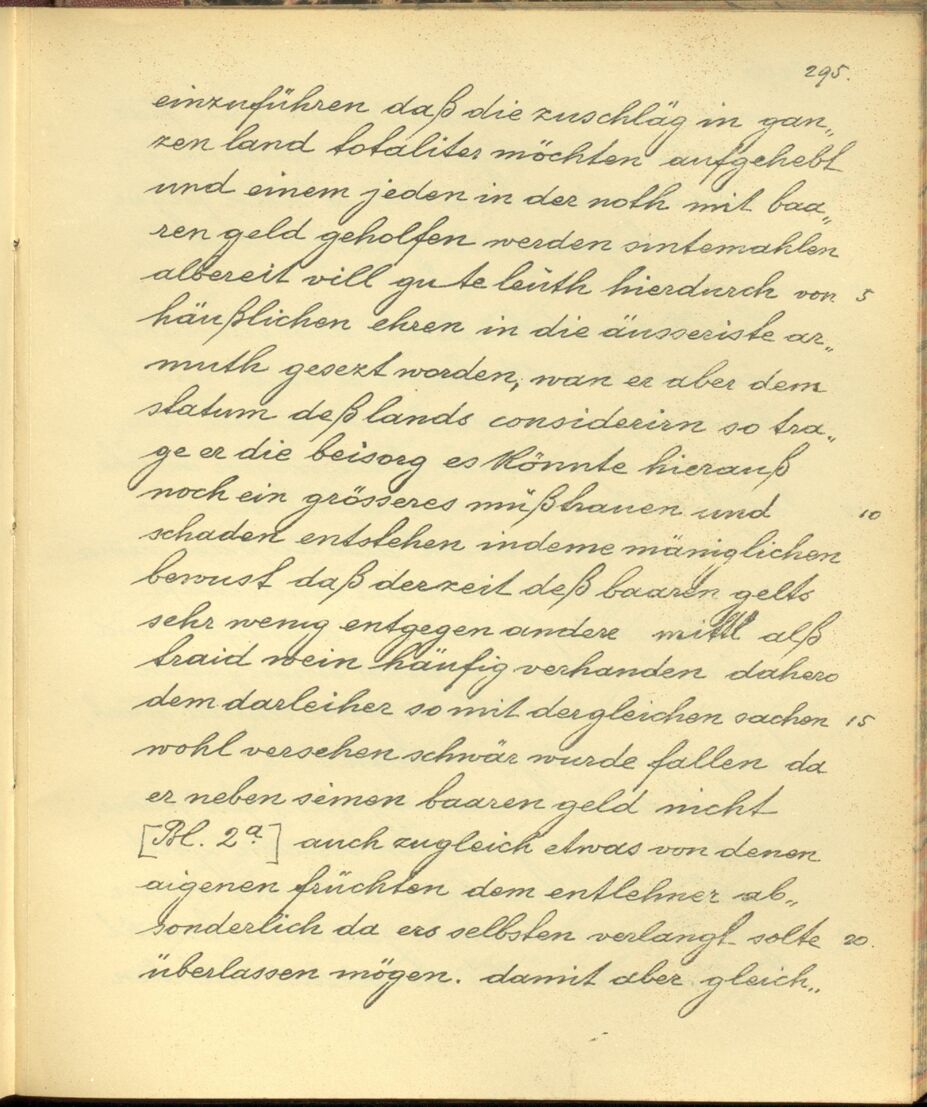 295.
einzuführen daß die zuschläg in gan„
zen land totaliter möchten aufgehebt
und einem jeden in der noth mit baa„
ren geld geholfen werden sintemahlen
albereit vill gute leüth hierdurch von 5
häußlichen ehren in die äusseriste ar„
muth gesezt worden, wan er aber dem
statum deß lands considerirn so tra„
ge er die beisorg es könnte hierauß
noch ein grösseres müßtrauen und 10
schaden entstehen indeme mäniglichen
bewust daß derzeit deß baaren gelts
sehr wenig entgegen andere mittl alß
traid wein häufig verhanden dahero
dem darleiher so mit dergleichen sachen 15
wohl versehen schwär wurde fallen da
er neben seinen baaren geld nicht
[Bl. 2a.] auch zugleich etwas von denen
aigenen früchten dem entlehner ab„
sonderlich da ers selbsten verlangt solte 20.
überlassen mögen. damit aber gleich„